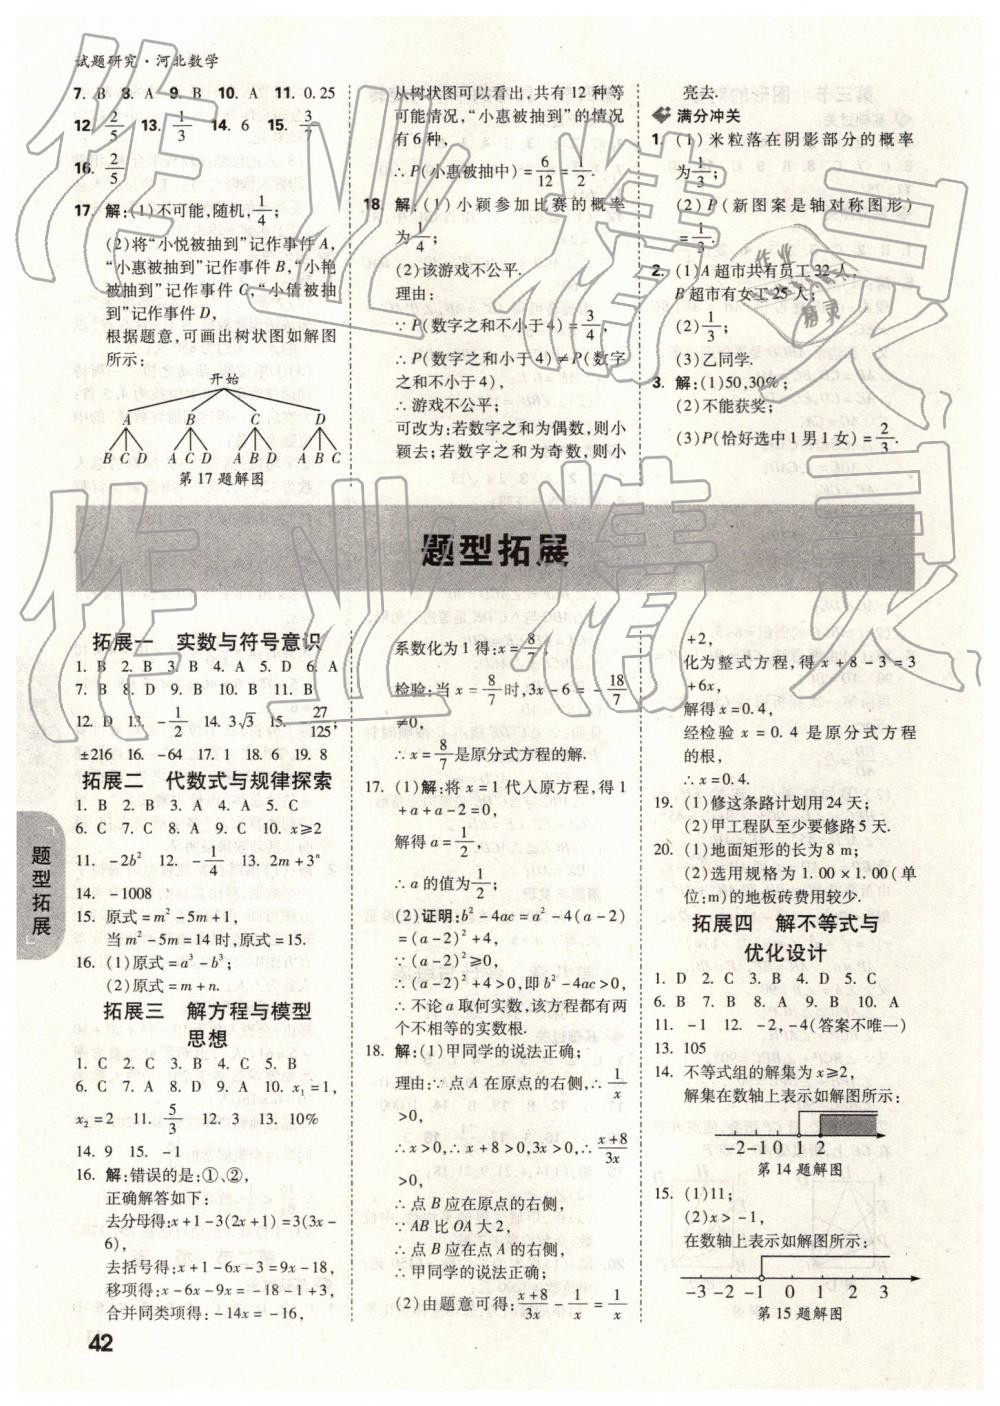 试题研究·河北数学
7. B 8. A 9. B 10. A 11. 0.25
12. 2/5 13. 1/3 14. 6 15. 3/7
16. 2/5
17. 解:(1)不可能,随机,1/4;
(2)将“小悦被抽到”记作事件A,
“小惠被抽到”记作事件B,“小艳
被抽到”记作事件C,“小倩被抽
到”记作事件D,
根据题意,可画出树状图如解图
所示:
开始
A B C D
B C D A C D A B D A B C
第17题解图
从树状图可以看出,共有12种等
可能情况,“小惠被抽到”的情况
有6种,
∴P(小惠被抽中)=6/12=1/2.
18. 解:(1)小颖参加比赛的概率
为1/4;
(2)该游戏不公平.
理由:
∵P(数字之和不小于4)=3/4,
∴P(数字之和小于4)≠P(数字
之和不小于4),
∴游戏不公平;
可改为:若数字之和为偶数,则小
颖去;若数字之和为奇数,则小
亮去.
满分冲关
1. (1)米粒落在阴影部分的概率
为1/3;
(2)P(新图案是轴对称图形)
=1/3.
2. (1)A超市共有员工32人,
B超市有女工25人;
(2)1/3;
(3)乙同学.
3. 解:(1)50,30%;
(2)不能获奖;
(3)P(恰好选中1男1女)=2/3.
题型拓展
拓展一 实数与符号意识
1. B 2. B 3. B 4. A 5. D 6. A
7. B 8. D 9. B 10. B 11. B
12. D 13. -1/2 14. 3√3 15. 27/125;
±216 16. -64 17. 1 18. 6 19. 8
拓展二 代数式与规律探索
1. B 2. B 3. A 4. A 5. C
6. C 7. C 8. A 9. C 10. x≥2
11. -2b² 12. -1/4 13. 2m+3ⁿ
14. -1008
15. 原式=m²-5m+1,
当m²-5m=14时,原式=15.
16. (1)原式=a³-b³;
(2)原式=m+n.
拓展三 解方程与模型
思想
1. C 2. C 3. B 4. C 5. B
6. C 7. A 8. D 9. A 10. x₁=1,
x₂=2 11. 5/3 12. 3 13. 10%
14. 9 15. -1
16. 解:错误的是:①、②,
正确解答如下:
去分母得:x+1-3(2x+1)=3(3x-
6),
去括号得:x+1-6x-3=9x-18,
移项得:x-6x-9x=-18-1+3,
合并同类项得:-14x=-16,
系数化为1得:x=8/7,
检验:当x=8/7时,3x-6=-18/7
≠0,
∴x=8/7是原分式方程的解.
17. (1)解:将x=1代入原方程,得1
+a+a-2=0,
解得a=1/2,
∴a的值为1/2;
(2)证明:b²-4ac=a²-4(a-2)
=(a-2)²+4,
∵(a-2)²≥0,
∴(a-2)²+4>0,即b²-4ac>0,
∴不论a取何实数,该方程都有两
个不相等的实数根.
18. 解:(1)甲同学的说法正确;
理由:∵点A在原点的右侧,∴1/x
>0,
∴x>0,∴x+8>0,3x>0,∴(x+8)/3x
>0,
∴点B应在原点的右侧,
∵AB比OA大2,
∴点B应在点A的右侧,
∴甲同学的说法正确;
(2)由题意可得:(x+8)/3x-1/x=1/x
+2,
化为整式方程,得x+8-3=3
+6x,
解得x=0.4,
经检验x=0.4是原分式方程
的根,
∴x=0.4.
19. (1)修这条路计划用24天;
(2)甲工程队至少要修路5天.
20. (1)地面矩形的长为8 m;
(2)选用规格为1.00×1.00(单
位:m)的地板砖费用较少.
拓展四 解不等式与
优化设计
1. D 2. C 3. B 4. D 5. C
6. B 7. B 8. A 9. B 10. A
11. -1 12. -2,-4(答案不唯一)
13. 105
14. 不等式组的解集为x≥2,
解集在数轴上表示如解图所示:
-2 -1 0 1 2
第14题解图
15. (1)11;
(2)x>-1,
在数轴上表示如解图所示:
-3 -2 -1 0 1 2 3
第15题解图
题型拓展
42
作业精灵
作业精灵